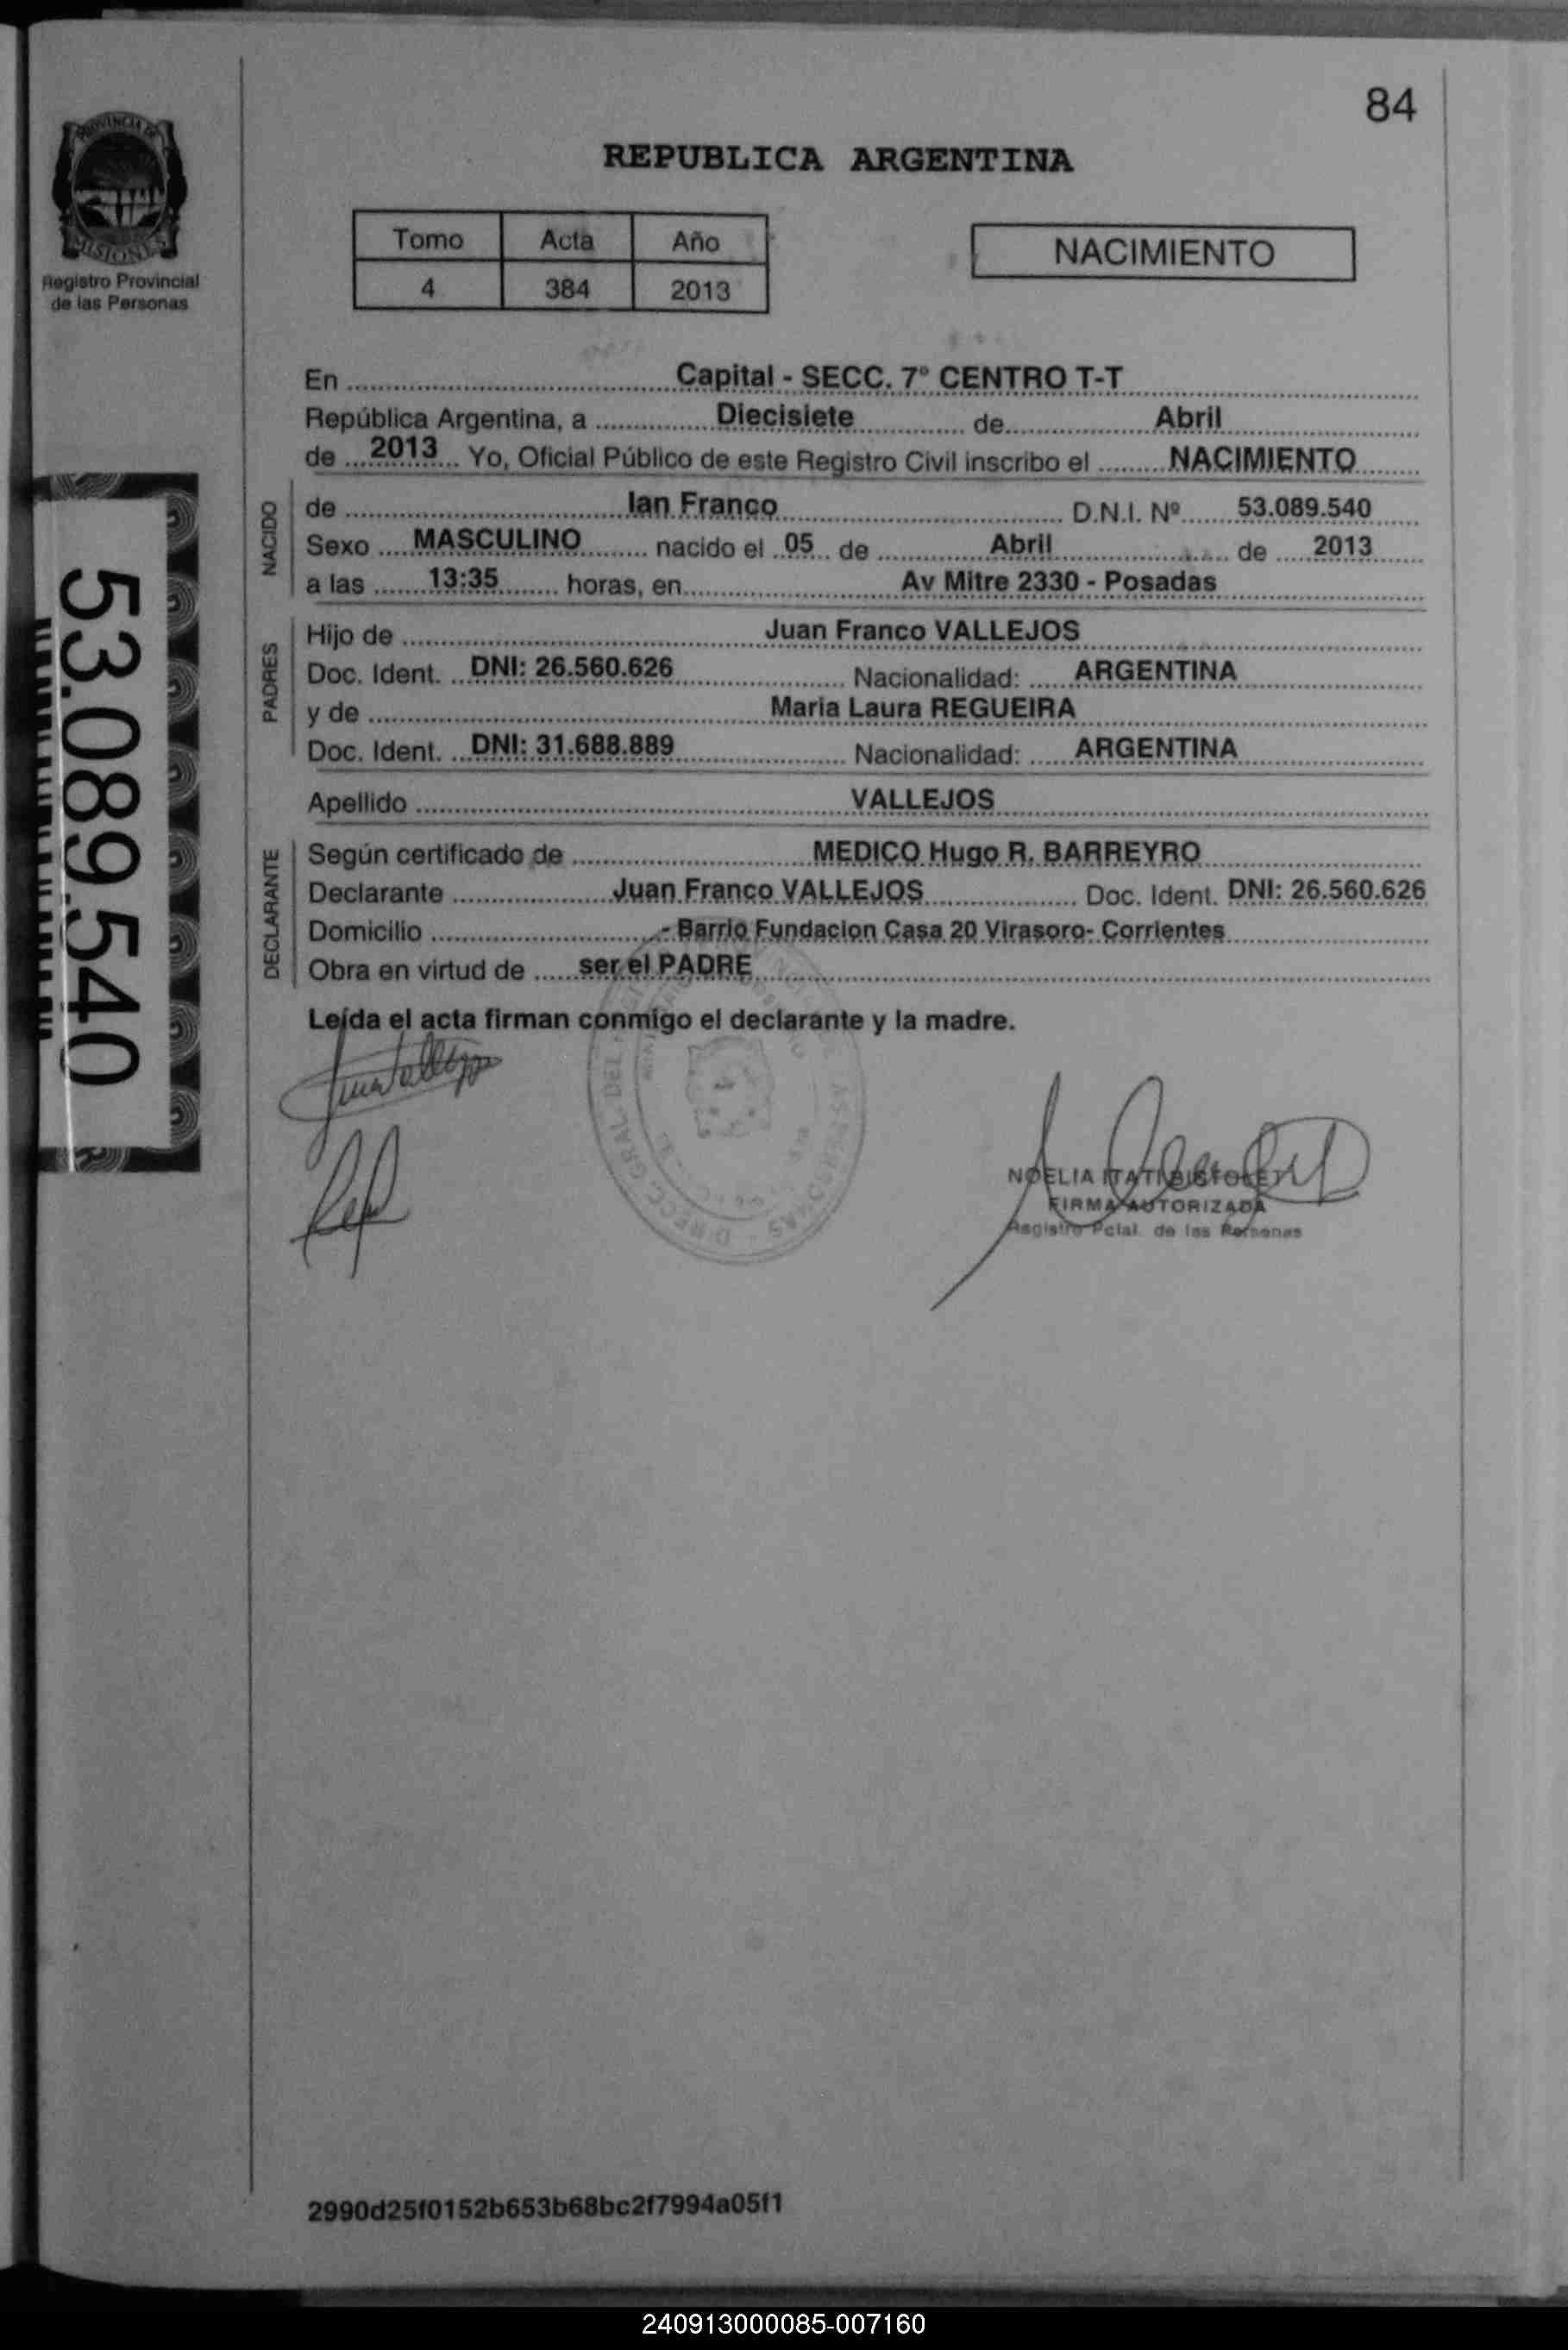 84
REPUBLICA ARGENTINA
PROVINCIA DE
MISIONES
Registro Provincial
de las Personas
Tomo Acta Año
4 384 2013
NACIMIENTO
En Capital - SECC. 7º CENTRO T-T
República Argentina, a Diecisiete de Abril
de 2013 Yo, Oficial Público de este Registro Civil inscribo el NACIMIENTO
NACIDO
de Ian Franco D.N.I. Nº 53.089.540
Sexo MASCULINO nacido el 05 de Abril de 2013
a las 13:35 horas, en Av Mitre 2330 - Posadas
PADRES
Hijo de Juan Franco VALLEJOS
Doc. Ident. DNI: 26.560.626 Nacionalidad: ARGENTINA
y de Maria Laura REGUEIRA
Doc. Ident. DNI: 31.688.889 Nacionalidad: ARGENTINA
Apellido VALLEJOS
DECLARANTE
Según certificado de MEDICO Hugo R. BARREYRO
Declarante Juan Franco VALLEJOS Doc. Ident. DNI: 26.560.626
Domicilio - Barrio Fundacion Casa 20 Virasoro- Corrientes
Obra en virtud de ser el PADRE
Leída el acta firman conmigo el declarante y la madre.
53.089.540
DIRECC GRAL DEL
NOELIA ITATI
FIRMA AUTORIZADA
Registro Pcial. de las Personas
2990d25f0152b653b68bc2f7994a05f1
240913000085-007160